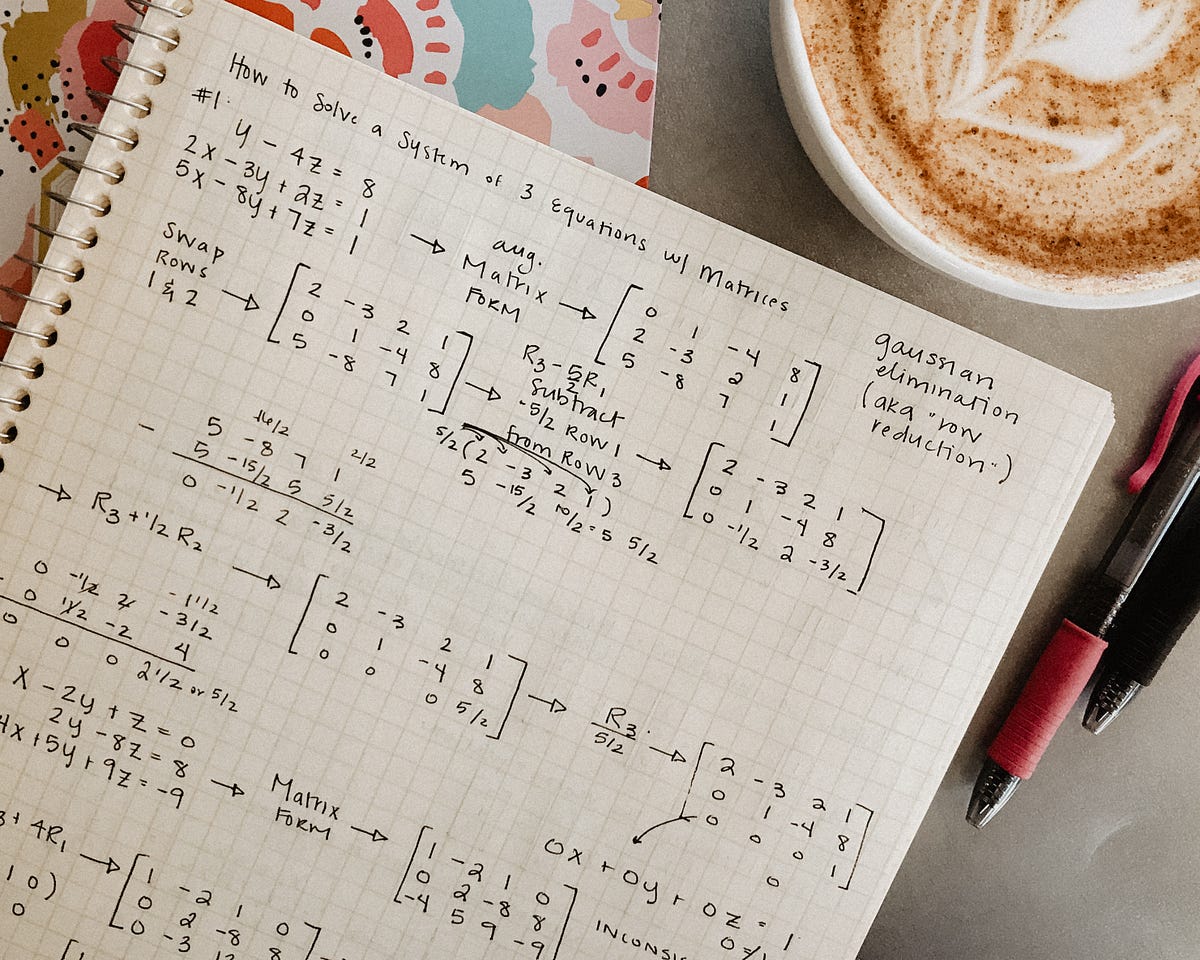 How to Solve a System of 3 Equations w/ Matrices
#1:
y - 4z = 8
2x - 3y + 2z = 1
5x - 8y + 7z = 1
→ aug.
Matrix
FORM →
[ 0 1 -4 8
2 -3 2 1
5 -8 7 1 ]
gaussian
elimination
(aka "row
reduction")
Swap
Rows
1 & 2 →
[ 2 -3 2 1
0 1 -4 8
5 -8 7 1 ]
→ R3 - 5/2 R1
Subtract
-5/2 Row 1
from Row 3 →
5/2 ( 2 -3 2 1 )
5 -15/2 10/2 = 5 5/2
[ 2 -3 2 1
0 1 -4 8
0 -1/2 2 -3/2 ]
16/2 2/2
5 -8 7 1
- 5 -15/2 5 5/2
0 -1/2 2 -3/2
→ R3 + 1/2 R2 →
- 1 1/2
0 -1/2 2 -3/2
0 1/2 -2 4
0 0 0 2 1/2 or 5/2
[ 2 -3 2 1
0 1 -4 8
0 0 0 5/2 ]
→ R3
5/2 →
[ 2 -3 2 1
0 1 -4 8
0 0 0 1 ]
0x + 0y + 0z = 1
x - 2y + z = 0
2y - 8z = 8
4x + 5y + 9z = -9
→ Matrix
FORM →
[ 1 -2 1 0
0 2 -8 8
-4 5 9 -9 ]
+ 4R1 →
1 0 )
0
[ 1 -2 1 0
0 2 -8 8
0 -3